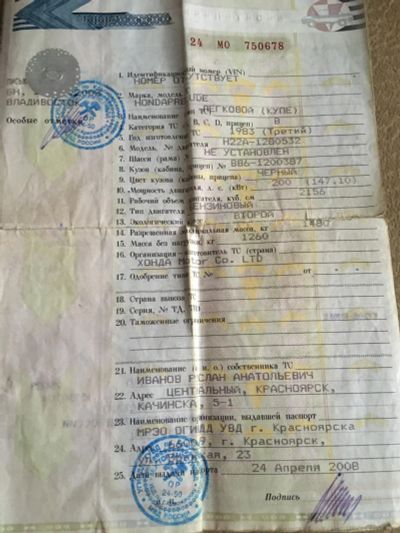 24 МО 750678
1. Идентификационный номер (VIN)
НОМЕР ОТСУТСТВУЕТ
2. Марка, модель
HONDAPRELUDE
ВЛАДИВОСТОК
Особые отметки
Наименование
ЛЕГКОВОЙ (КУПЕ)
Категория ТС B, C, D, прицеп) B
Год изготовления 1983 (Третий)
6. Модель, № H22A-1280532
7. Шасси (рама) НЕ УСТАНОВЛЕН
8. Кузов (кабина, прицеп) № BB6-1200387
9. Цвет кузова (кабины, прицепа) ЧЕРНЫЙ
10. Мощность двигателя, л. с. (кВт) 200 (147,10)
11. Рабочий объем двигателя, куб. см 2156
12. Тип двигателя БЕНЗИНОВЫЙ
13. Экологический ВТОРОЙ
14. Разрешенная максимальная масса, кг 1480
15. Масса без нагрузки, кг 1260
16. Организация - изготовитель ТС (страна)
ХОНДА Motor Co. LTD
17. Одобрение типа ТС № от
18. Страна вывоза ТС
19. Серия, № ТД, ТПО
20. Таможенные ограничения
21. Наименование (ф. и. о.) собственника ТС
ИВАНОВ РУСЛАН АНАТОЛЬЕВИЧ
22. Адрес ЦЕНТРАЛЬНЫЙ, КРАСНОЯРСК,
КАЧИНСКА, 5-1
23. Наименование организации, выдавшей паспорт
МРЭО ОГИДД УВД г. Красноярска
24. Адрес г. Красноярск,
23
25. Дата выдачи паспорта 24 Апреля 2008
Подпись